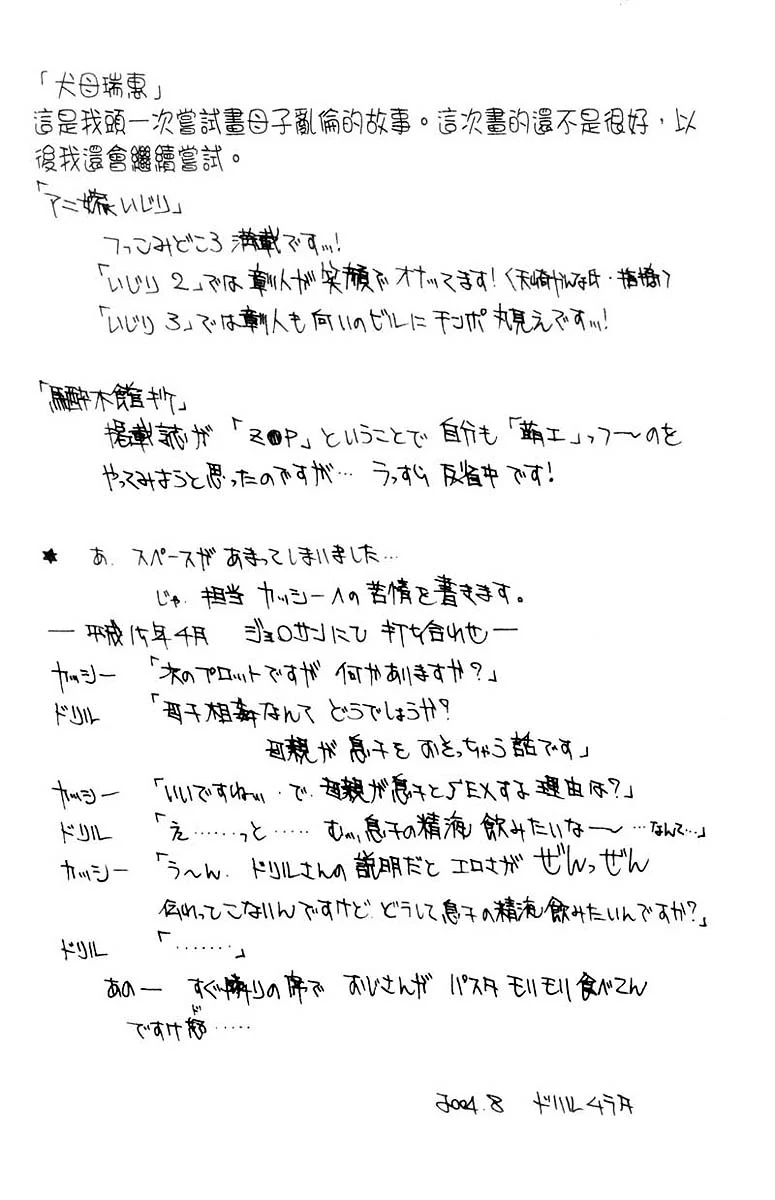 「犬母瑞惠」
這是我頭一次嘗試畫母子亂倫的故事。這次畫的還不是很好，以
後我還會繼續嘗試。
「アニ嫁いじり」
つっこみどころ満載ですッ!
「いじり2」では彰人が笑顔でオナッてます!〈天崎かんな氏・指摘〉
「いじり3」では彰人も向いのビルにチンポ丸見えですッ!
「馬酔木館 」
掲載誌が「Z●P」ということで自分も「萌エ」っつ〜のを
やってみようと思ったのですが… うっすら反省中です!
★ あ、スペースがあまってしまいました…
じゃ、担当カッシーへの苦情を書きます。
— 平成15年4月 ジョ○サンにて 打ち合わせ —
カッシー 「次のプロットですが 何かありますか?」
ドリル 「母子相姦なんて どうでしょうか?
母親が息子を おそっちゃう話です」
カッシー 「いいですねッ・で、母親が息子とSEXする理由は?」
ドリル 「え……っと…… むッ、息子の精液飲みたいな〜 …なんて…」
カッシー 「う〜ん、ドリルさんの説明だと エロさが ぜんっぜん
伝わってこないんですけど、どうして息子の精液飲みたいんですか?」
ドリル 「‥‥‥」
あのー すぐ隣りの席で おじさんが パスタ モリモリ食べてん
ですけ怒ド……
2004.8 ドリルムラタ